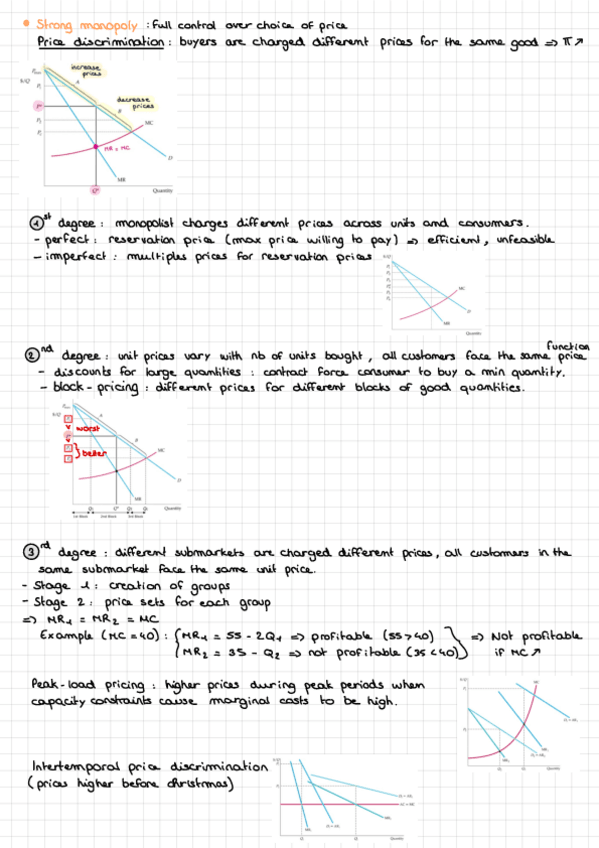 • Strong monopoly : full control over choice of price
Price discrimination : buyers are charged different prices for the same good => π↗
increase
prices
Pmax
$/Q
A
P1
decrease
prices
P*
B
P2
MC
Pc
MR = MC
D
MR
Q*
Quantity
① st degree : monopolist charges different prices across units and consumers.
- perfect : reservation price (max price willing to pay) => efficient, unfeasible
- imperfect : multiples prices for reservation prices
$/Q
MC
D
MR
Quantity
② nd degree : unit prices vary with nb of units bought, all customers face the same price function
- discounts for large quantities : contract force consumer to buy a min quantity.
- block-pricing : different prices for different blocks of good quantities.
Pmax
$/Q
A
worst
B
better
MC
D
MR
Q1
Q*
Q2
Q3
Quantity
1st Block
2nd Block
3rd Block
③ rd degree : different submarkets are charged different prices, all customers in the
same submarket face the same unit price.
- Stage 1 : creation of groups
- Stage 2 : price sets for each group
=> MR1 = MR2 = MC
Example (MC = 40) : { MR1 = 55 - 2Q1 => profitable (55 > 40) } => Not profitable
MR2 = 35 - Q2 => not profitable (35 < 40) if MC↗
Peak-load pricing : higher prices during peak periods when
capacity constraints cause marginal costs to be high.
$/Q
MC
P1
P2
D1 = AR1
MR1
D2 = AR2
MR2
Q2
Q1
Quantity
Intertemporal price discrimination
(prices higher before christmas)
$/Q
P1
P2
D2 = AR2
AC = MC
MR2
D1 = AR1
MR1
Q1
Q2
Quantity